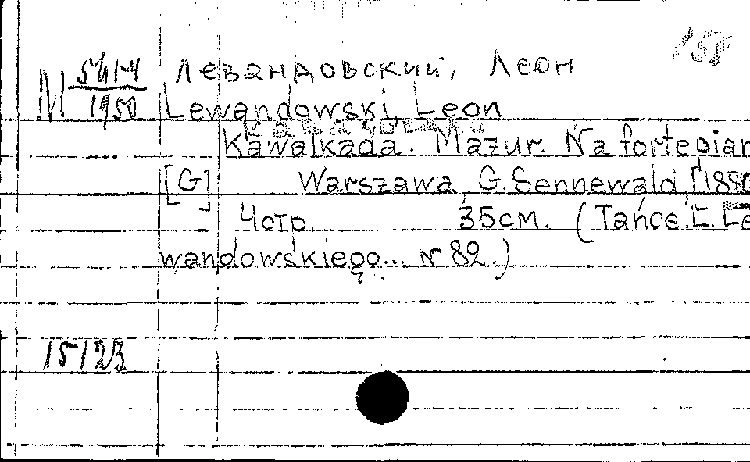 Левандовский, Леон
M 1950 Lewandowski, Leon
Kawalkada. Mazur. Na fortepian
[G] Warszawa, G. Sennewald, [1880
4 стр. 35 см. (Tańce L. Le
wandowskiego... N 82.)
15123